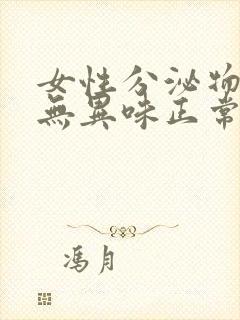 女性分泌物
無異味正常
馮月